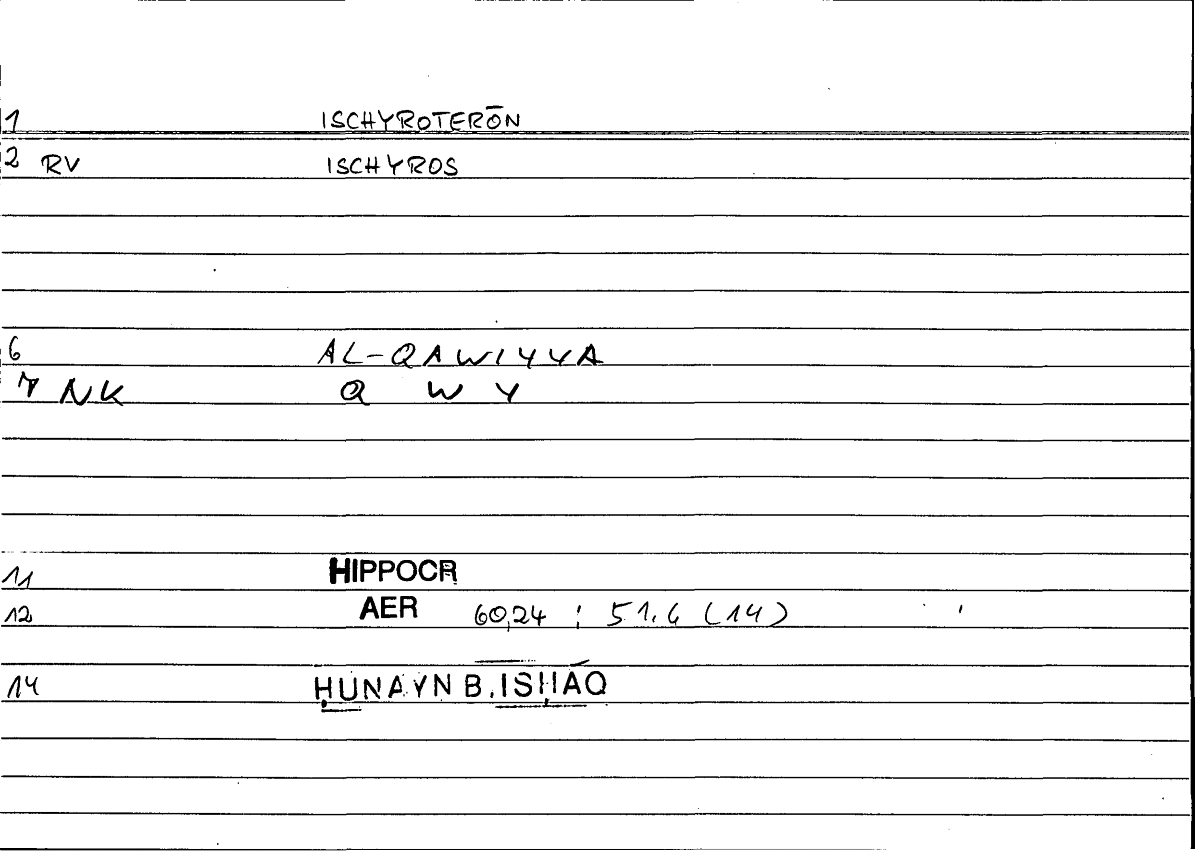 1 ISCHYROTERŌN
2 RV ISCHYROS
6 AL-QAWIYYA
7 NK Q W Y
11 HIPPOCR
12 AER 60,24 ; 51.6 (14)
14 ḤUNAYN B. ISḤĀQ